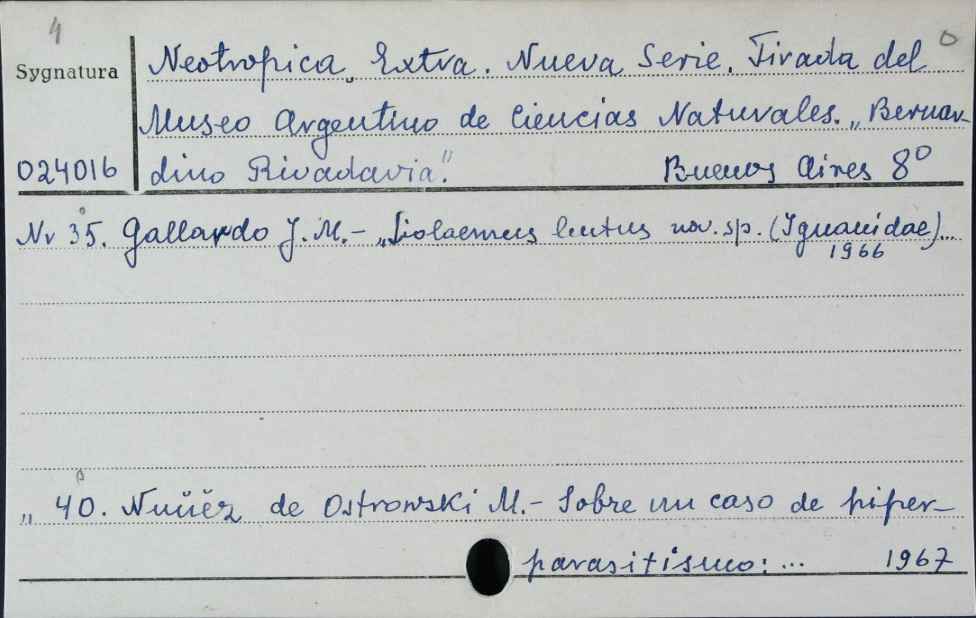 4
0
Sygnatura
Neotropica, Extra. Nueva Serie. Tirada del
Museo Argentino de Ciencias Naturales. „Bernar-
024016
dino Rivadavia."
Buenos Aires 8°
Nr 35. Gallardo J. M. - „Liolaemus lentus nov. sp. (Iguanidae)...
1966
„ 40. Nuñez de Ostrowski M. - Sobre un caso de hiper-
parasitismo: ... 1967